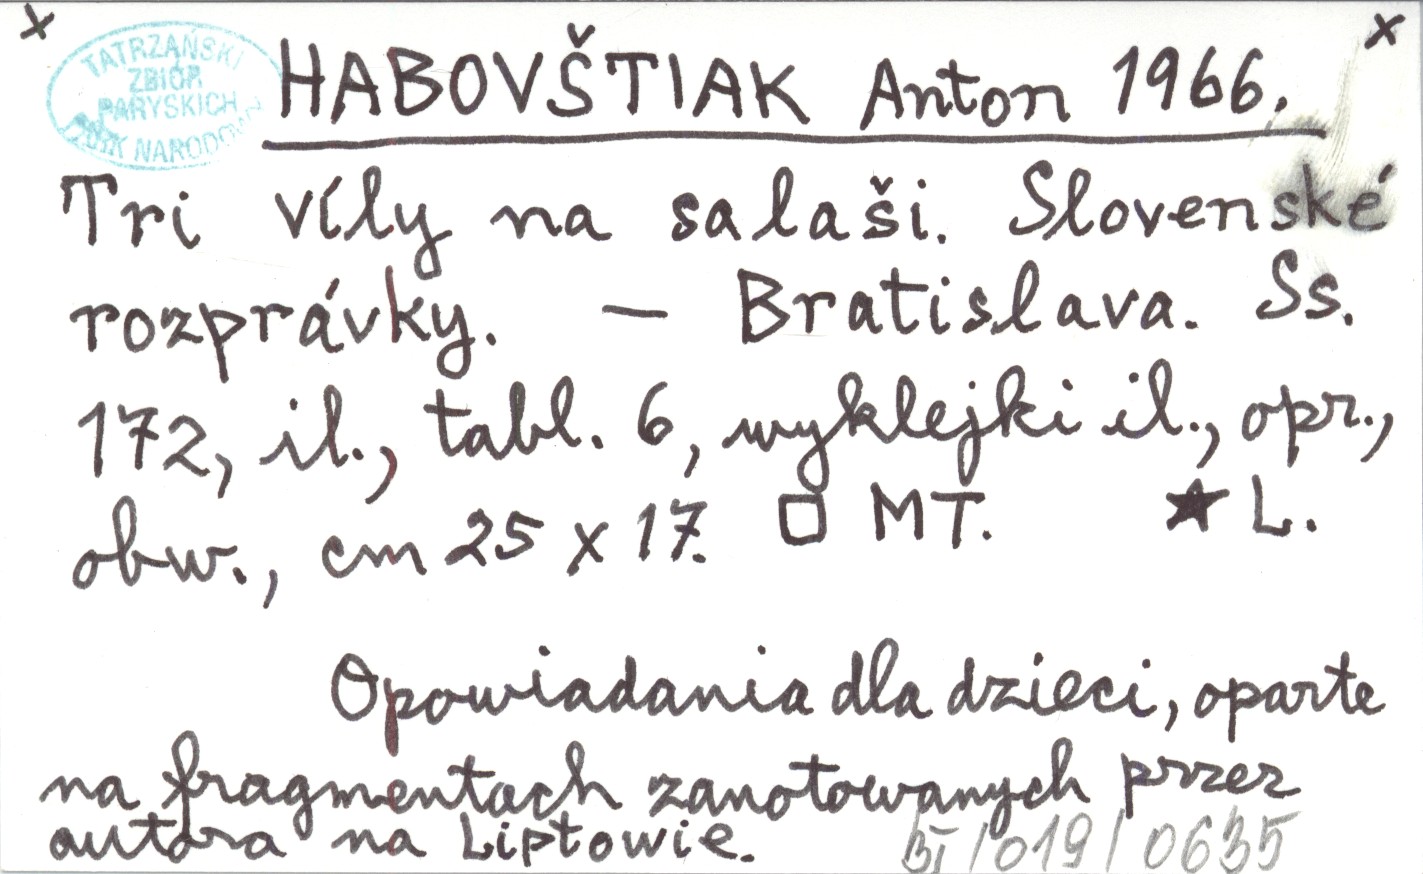 x
x
TATRZAŃSKI
ZBIÓR
PARYSKICH
HABOVŠTIAK Anton 1966.
Tri víly na salaši. Slovenské
rozprávky. — Bratislava. Ss.
172, il., tabl. 6, wyklejki il., opr.,
obw., cm 25 x 17. □ MT. ★ L.
Opowiadania dla dzieci, oparte
na fragmentach zanotowanych przez
autora na Liptowie.
/019/0635